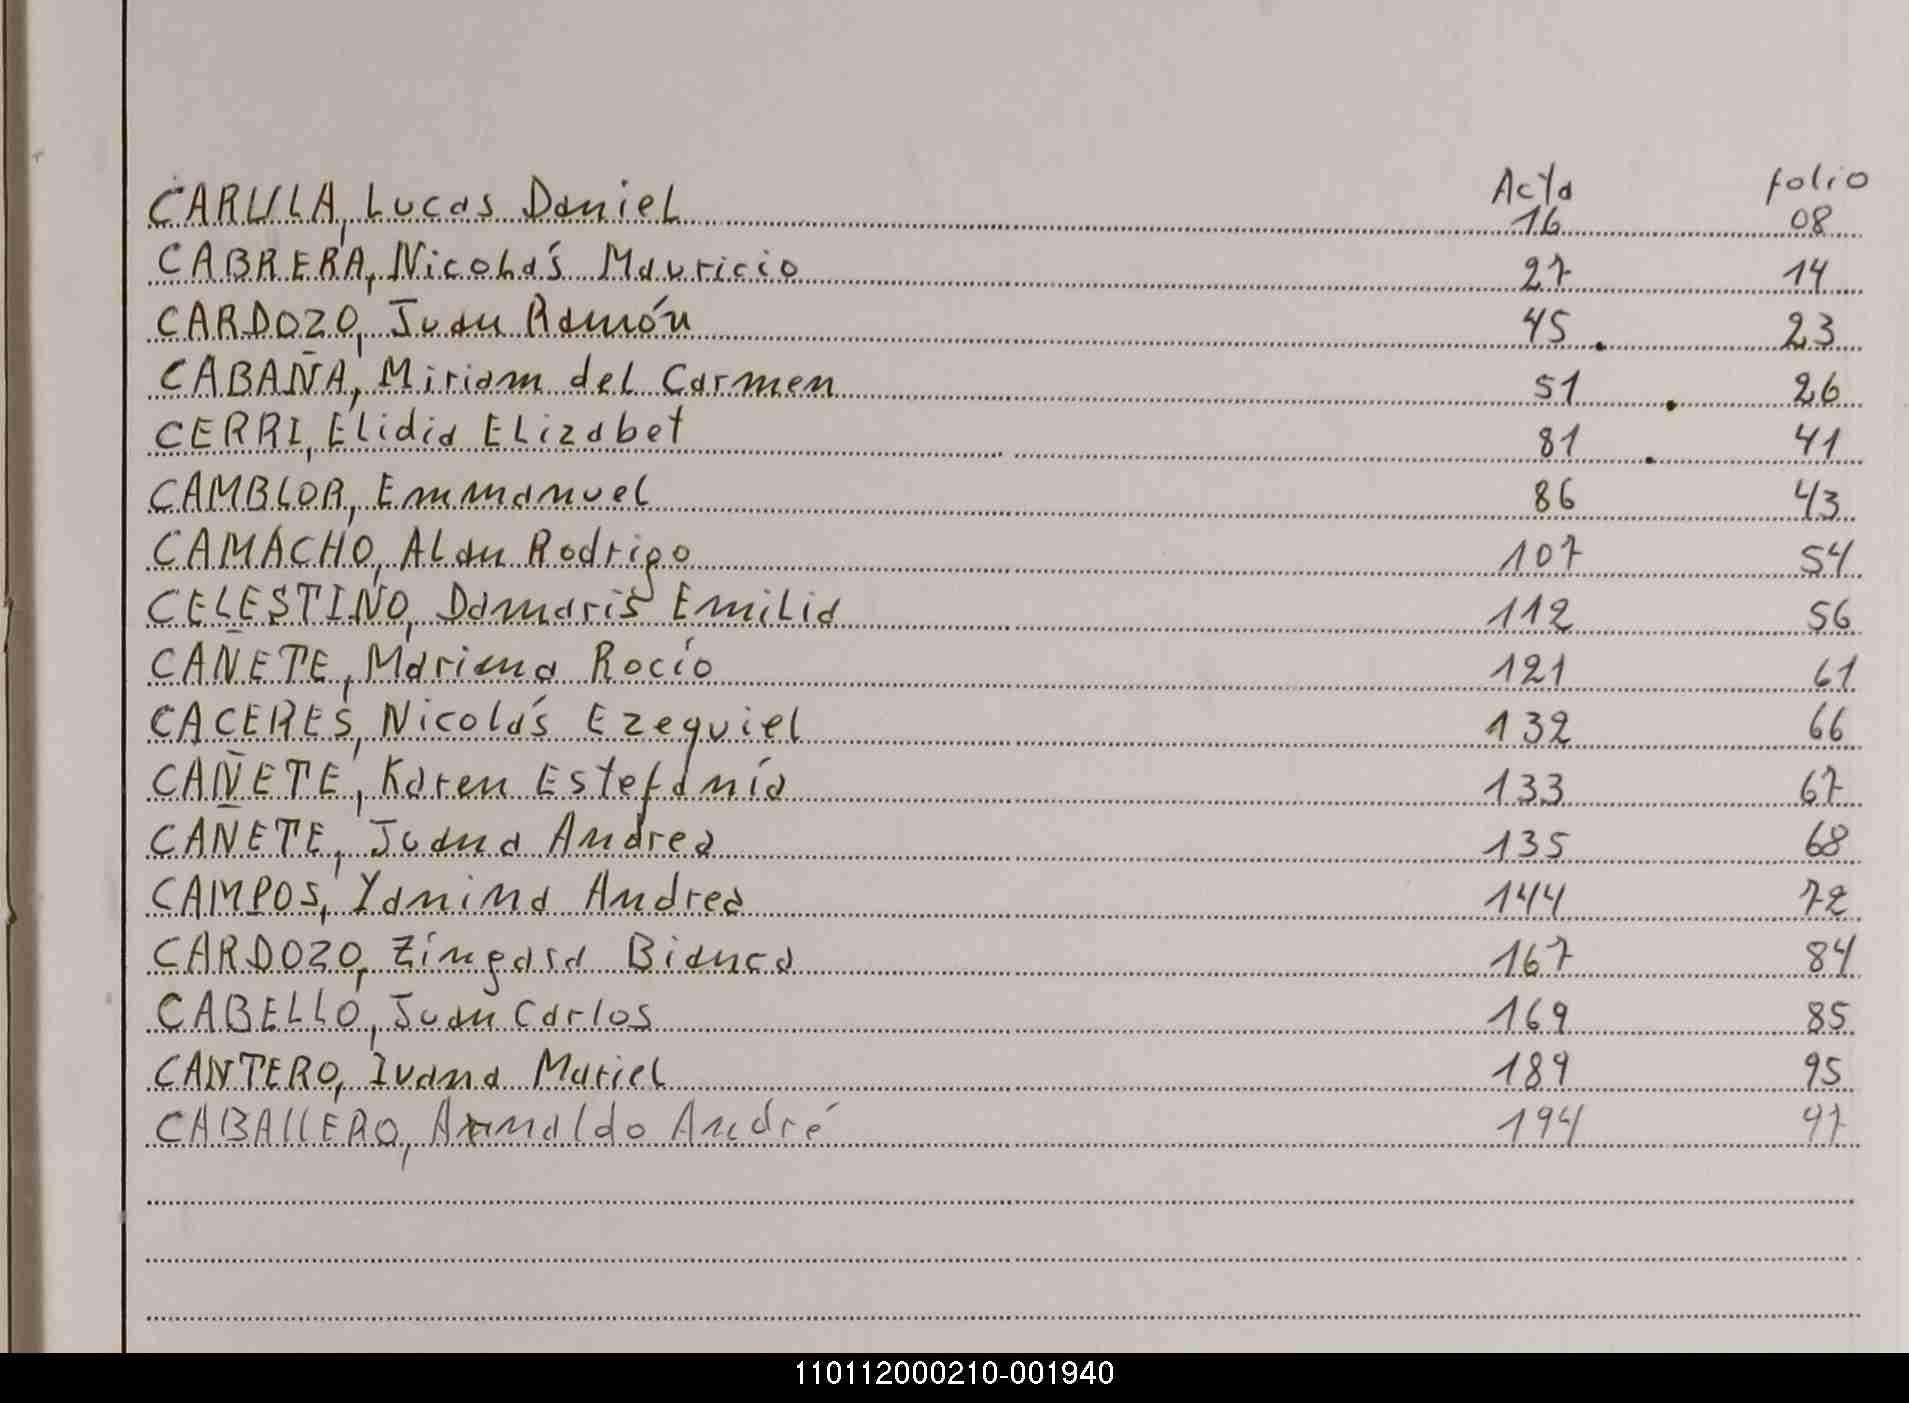 Acta folio
CARULA, Lucas Daniel 16 08
CABRERA, Nicolás Mauricio 27 14
CARDOZO, Juan Ramón 45 23
CABAÑA, Miriam del Carmen 51 26
CERRI, Elidia Elizabet 81 41
CAMBLOR, Emmanuel 86 43
CAMACHO, Alan Rodrigo 107 54
CELESTINO, Damaris Emilia 112 56
CAÑETE, Mariana Rocío 121 61
CACERES, Nicolás Ezequiel 132 66
CAÑETE, Karen Estefanía 133 67
CAÑETE, Juana Andrea 135 68
CAMPOS, Yanina Andrea 144 72
CARDOZO, Zíngara Bianca 167 84
CABELLO, Juan Carlos 169 85
CANTERO, Ivana Mariel 189 95
CABALLERO, Arnaldo André 194 97
110112000210-001940